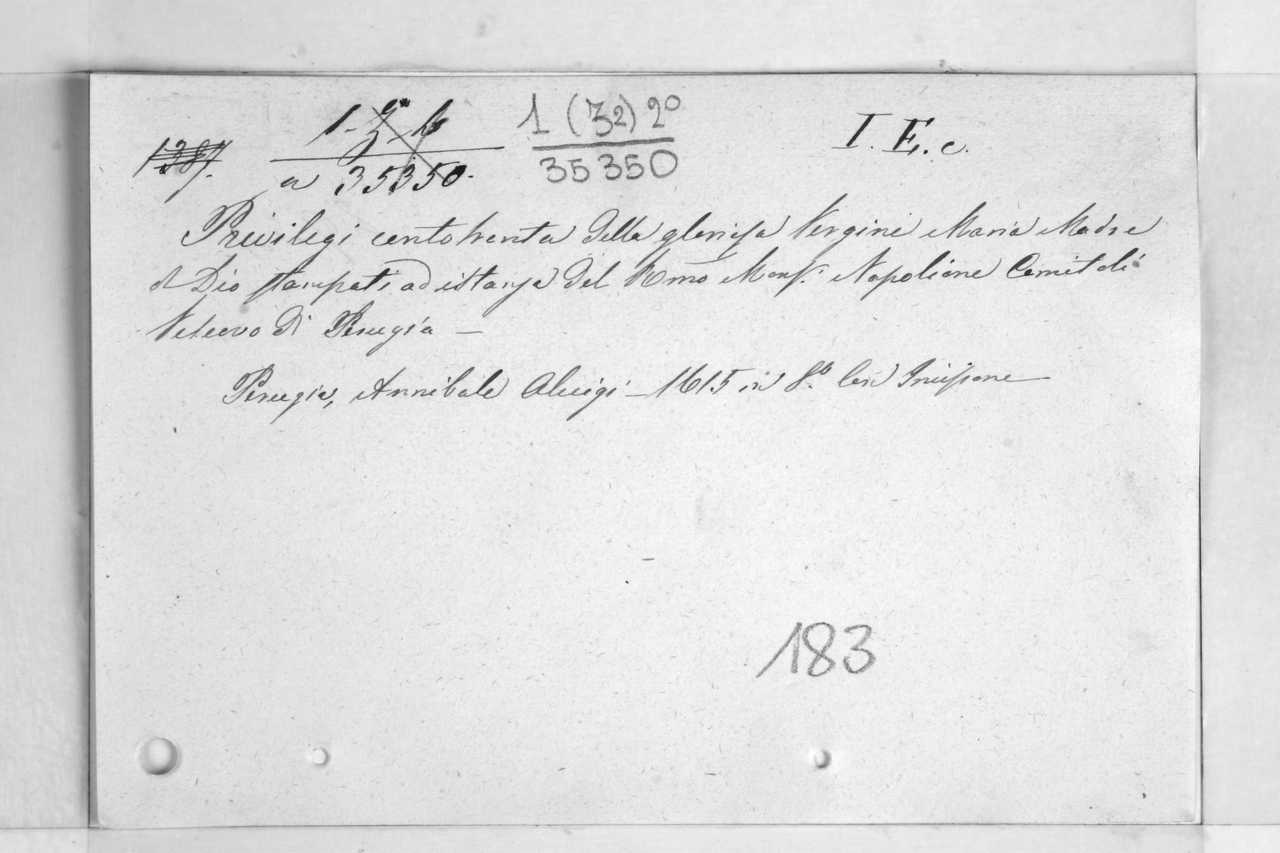 1387.
1 - 3ª - 6
a 35350.
1 (32) 2º
35350
I. E. c.
Privilegi centotrenta della gloriosa Vergine Maria Madre
di Dio stampati ad istanza del Rmo Mons. Napolione Comitoli
Vescovo di Perugia —
Perugia, Annibale Aluigi — 1615 in 8.º Con Incisione —
183